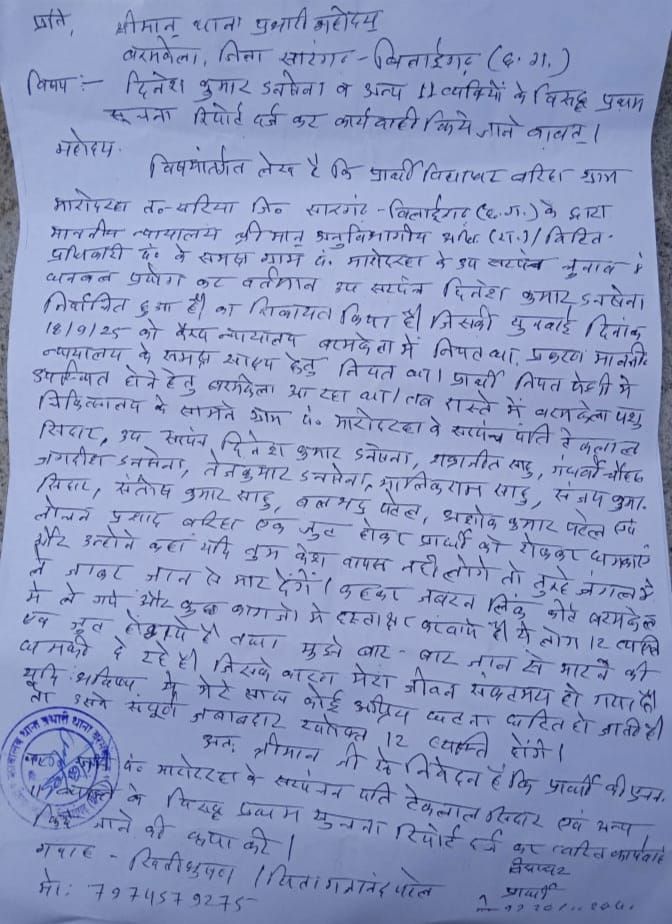 प्रति,
श्रीमान् थाना प्रभारी महोदय
बरमकेला, जिला सारंगढ़ - बिलाईगढ़ (छ.ग.)
विषय :- दिनेश कुमार डनसेना व अन्य 11 व्यक्तियों के विरूद्ध प्रथम
सूचना रिपोर्ट दर्ज कर कार्यवाही किये जाने बाबत्।
महोदय,
विषयांतर्गत लेख है कि प्रार्थी विद्याधर बरिहा ग्राम
सारंगढ़ - बिलाईगढ़ (छ.ग.) के द्वारा
माननीय न्यायालय श्रीमान् अनुविभागीय (रा.) / विहित
प्राधिकारी पं. के समक्ष ग्राम पं. के उप सरपंच चुनाव में
धनबल प्रयोग कर वर्तमान उप सरपंच दिनेश कुमार डनसेना
निर्वाचित हुआ है। का शिकायत किया है। जिसकी सुनवाई दिनांक
18/9/25 को कैम्प न्यायालय बरमकेला में नियत था, प्रकरण माननीय
न्यायालय के समक्ष साक्ष्य हेतु नियत था। प्रार्थी नियत पेशी में
उपस्थित होने हेतु बरमकेला आ रहा था। तब रास्ते में बरमकेला पशु
चिकित्सालय के सामने ग्राम पं. के सरपंच पति टेकलाल
सिदार, उप सरपंच दिनेश कुमार डनसेना, साहु,
जगदीश डनसेना, तेजकुमार डनसेना, मालिकराम साहु, संजय कुमार
सिदार, संतोष कुमार साहु, बलभद्र पटेल, अशोक कुमार पटेल एवं
लोचन प्रसाद बरिहा एक जुट होकर प्रार्थी को रोककर धमकाएं
और उन्होंने कहा यदि तुम केश वापस नहीं लोगे तो तुम्हे जंगल में
ले जाकर जान से मार देंगे। कहकर जबरन लिंक कोर्ट बरमकेला
में ले गये और कुछ कागजो में हस्ताक्षर करवाये है। ये लोग 12 व्यक्ति
एक जूट होकर है तथा मुझे बार-बार जान से मारने की
धमकी दे रहे है। जिसके कारण मेरा जीवन संकटमय हो गया है।
यदि भविष्य में मेरे साथ कोई अप्रिय घटना घटित हो जाती है।
तो उसके संपूर्ण जवाबदार उपरोक्त 12 व्यक्ति होंगे।
अतः श्रीमान जी से निवेदन है कि प्रार्थी की
पं. के सरपंच पति टेकलाल सिदार एवं अन्य
के विरूद्ध प्रथम सुचना रिपोर्ट दर्ज कर त्वरित कार्यवाही
किये जाने की कृपा करें।
गवाह - पटेल
मो: 7974579275
विद्याधर
प्रार्थी